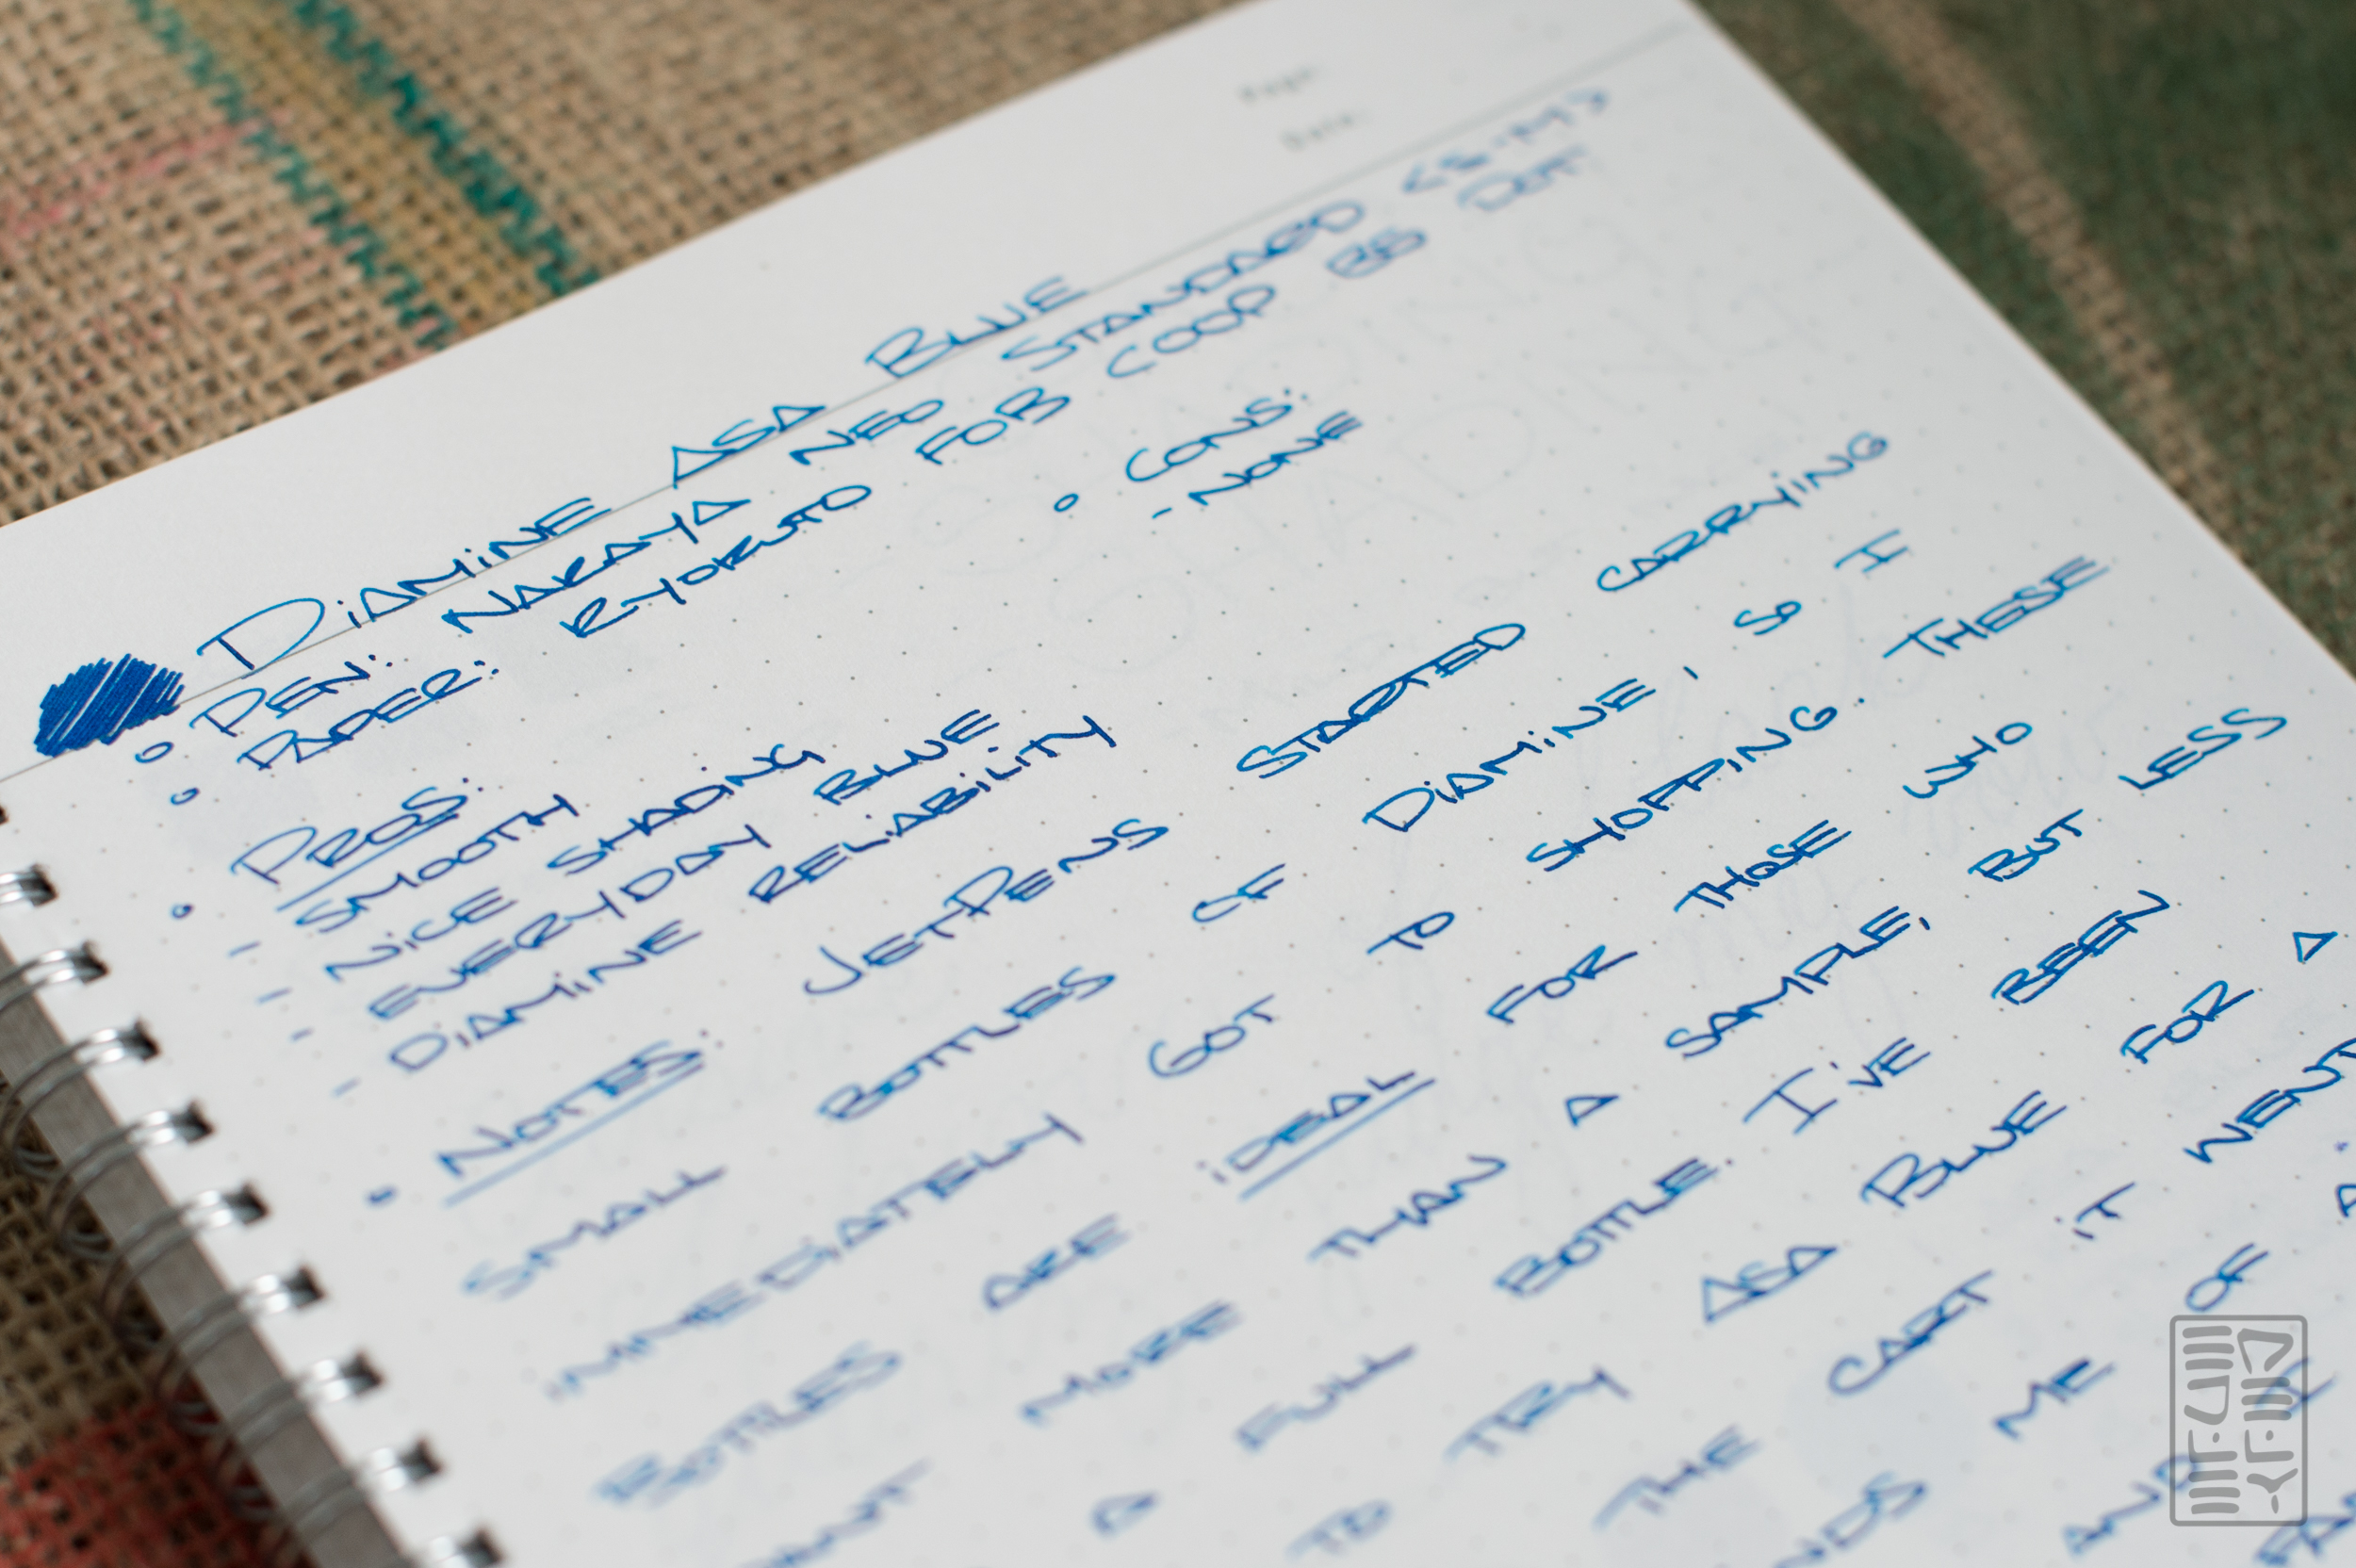 Page:
Date:
DIAMINE ASA BLUE
• PEN: NAKAYA NEO STANDARD <S-M>
• PAPER: KYOKUTO FOB COOP B5 DEF
• PROS: • CONS:
- SMOOTH - NONE
- NICE SHADING
- EVERYDAY BLUE
- DIAMINE RELIABILITY
• NOTES: JETPENS STARTED CARRYING
SMALL BOTTLES OF DIAMINE, SO I
IMMEDIATELY GOT TO SHOPPING. THESE
BOTTLES ARE IDEAL FOR THOSE WHO
WANT MORE THAN A SAMPLE, BUT LESS
A FULL BOTTLE. I'VE BEEN
TO TRY ASA BLUE FOR A
THE CART IT WENT
ME OF
AND